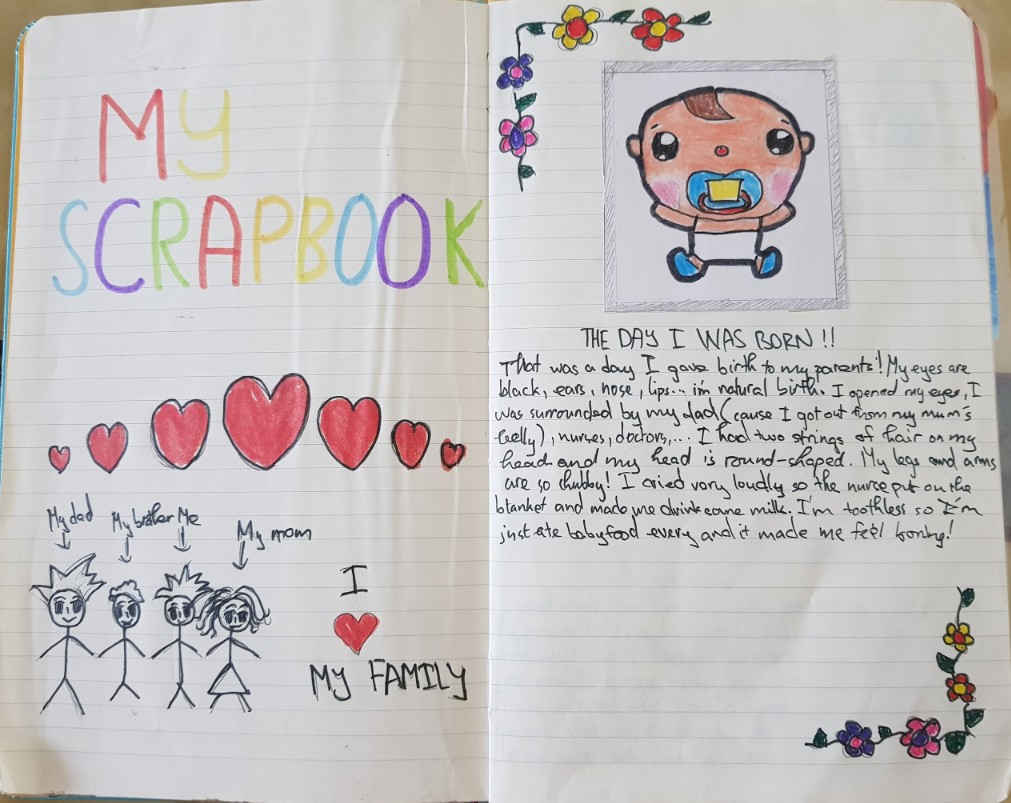 My
SCRAPBOOK
My dad
My brother
Me
My mom
I
MY FAMILY
THE DAY I WAS BORN !!
That was a day I gave birth to my parents! My eyes are
black, ears, nose, lips... i'm natural birth. I opened my eyes, I
was surrounded by my dad (cause I got out from my mum's
belly), nurses, doctors,... I had two strings of hair on my
head and my head is round-shaped. My legs and arms
are so chubby! I cried very loudly so the nurse put on the
blanket and made me drink some milk. I'm toothless so I'm
just ate babyfood every and it made me feel boring!